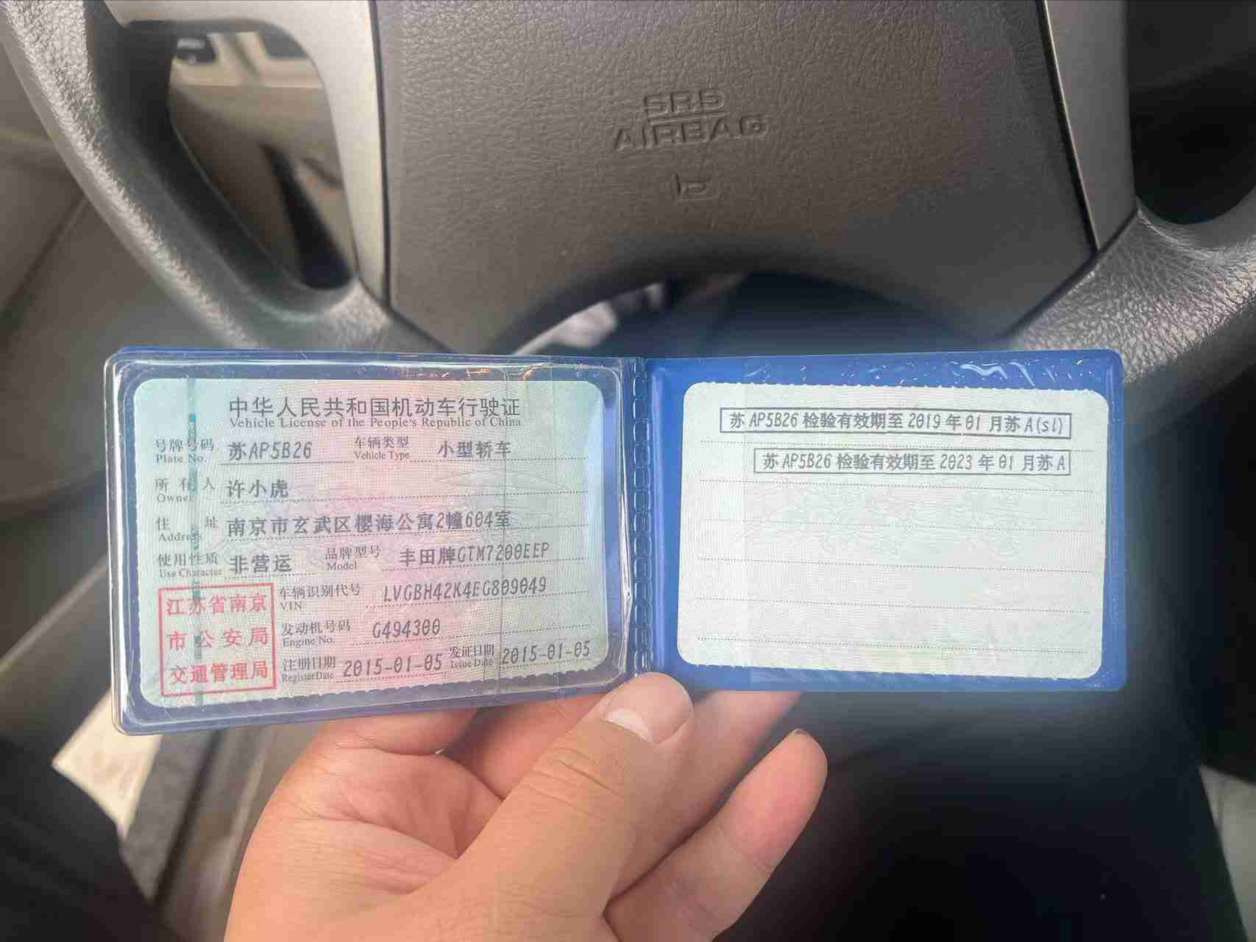 SRS
AIRBAG
中华人民共和国机动车行驶证
Vehicle License of the People's Republic of China
号牌号码 苏AP5B26 车辆类型 小型轿车
Plate No. Vehicle Type
所有人 许小虎
Owner
住址 南京市玄武区樱海公寓2幢604室
Address
使用性质 非营运 品牌型号 丰田牌GTM7200EEP
Use Character Model
江苏省南京
市公安局
交通管理局
车辆识别代号 LVGBH42K4EG809049
VIN
发动机号码 G494300
Engine No.
注册日期 2015-01-05 发证日期 2015-01-05
Register Date Issue Date
苏AP5B26 检验有效期至 2019 年 01 月苏A(sl)
苏AP5B26 检验有效期至 2023 年 01 月苏A